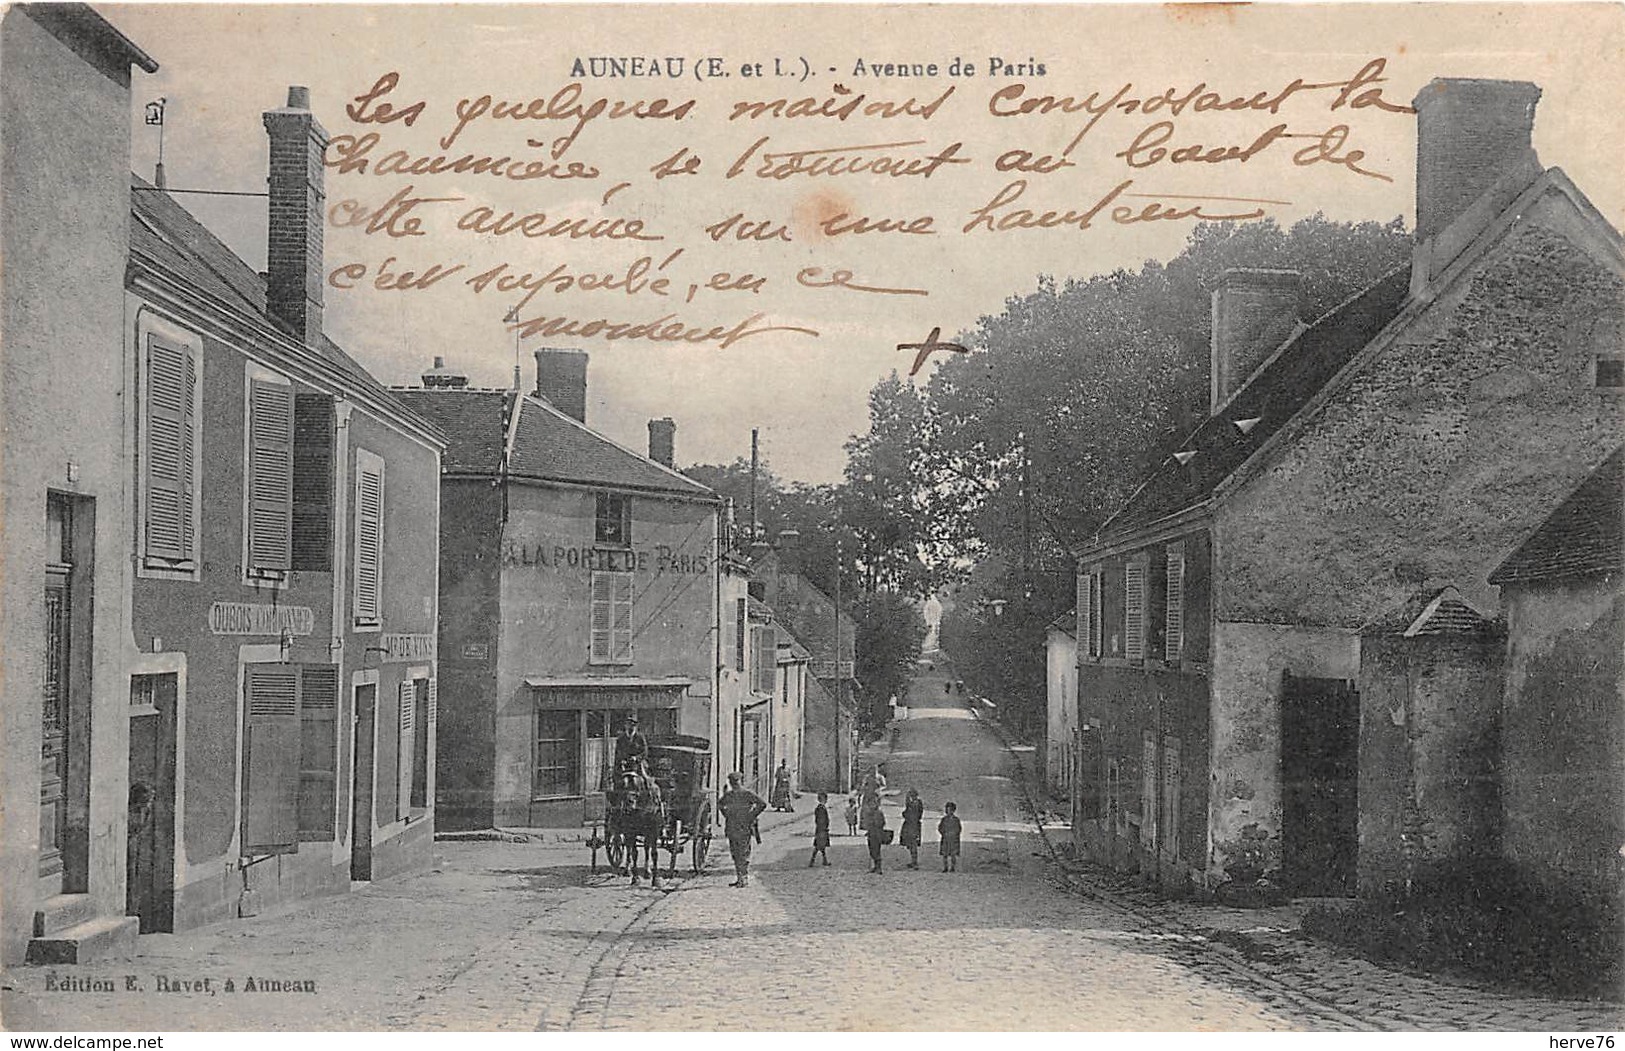 AUNEAU (E. et L.). - Avenue de Paris
Les quelques maisons composant la
Chaumière, se trouvant au bout de
cette avenue, sur une hauteur
c'est superbe, en ce
moment
+
A LA PORTE DE PARIS
DUBOIS CORDONNIER
Md DE VINS
Édition E. Ravet, à Auneau
www.delcampe.net
herve76